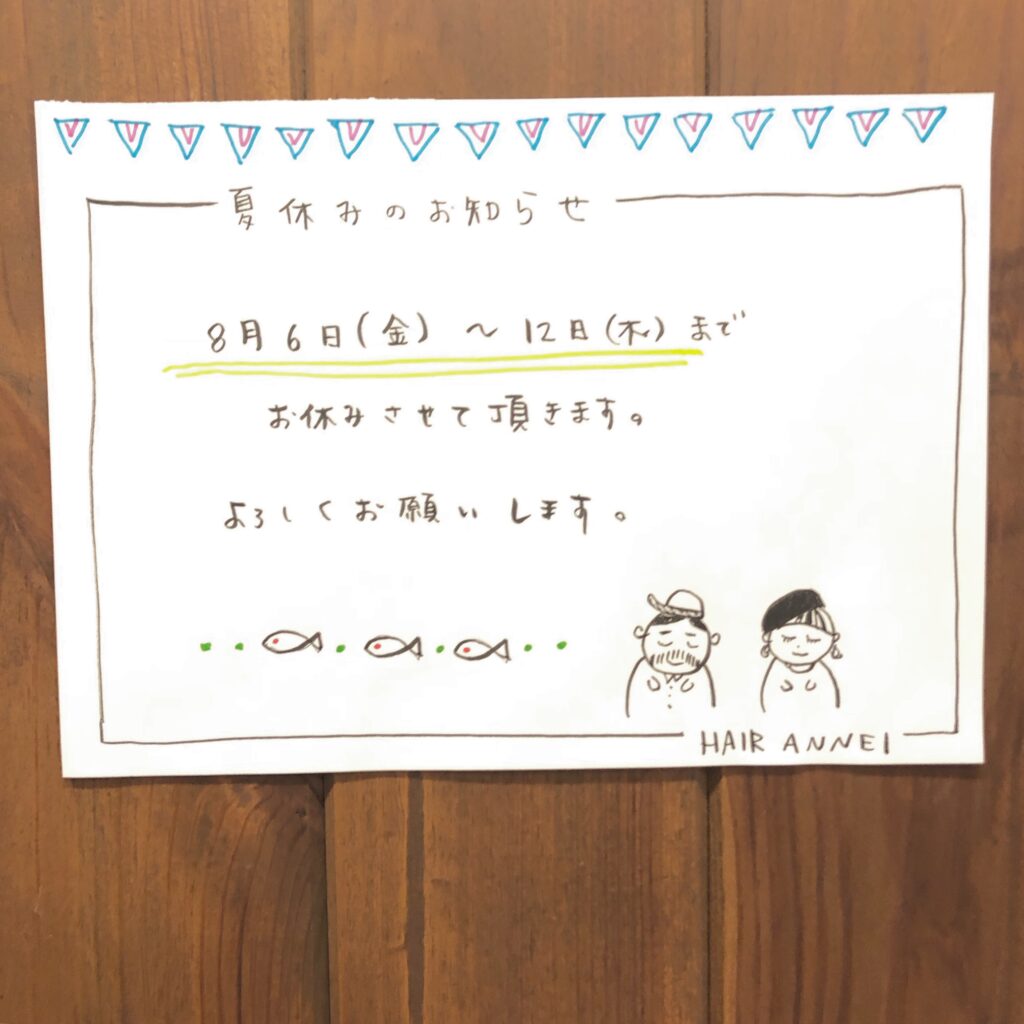 夏休みのお知らせ
8月6日(金)〜12日(木)まで
お休みさせて頂きます。
よろしくお願いします。
HAIR ANNEI